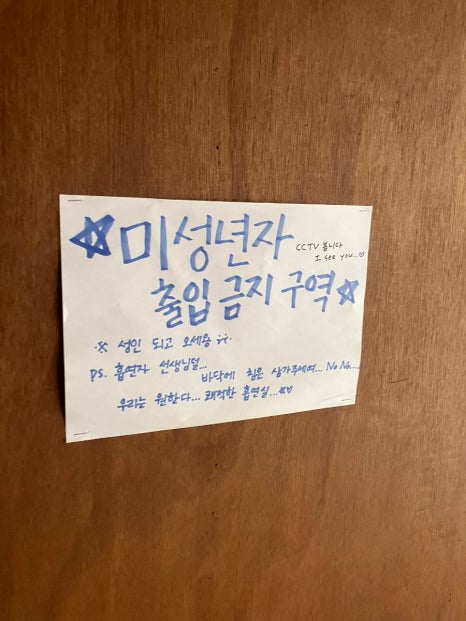 ☆미성년자
CCTV 봅니다
I see you...♡
출입 금지 구역☆
※ 성인 되고 오세용 :^^:
ps. 흡연자 선생님덜...
바닥에 침은 삼가주세여... No No...
우리는 원한다... 쾌적한 흡연실...☆♡